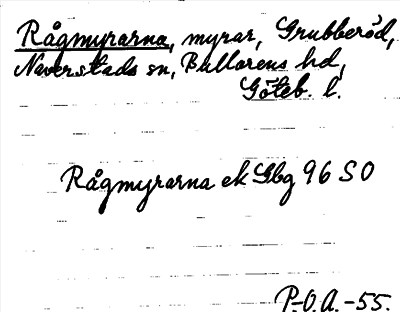 Rågmyrarna, myrar, Grubberöd,
Naverstads sn, Bullarens hd,
Göteb. l.
Rågmyrarna ek Gbg 96 SO
P.-O.A.-55.